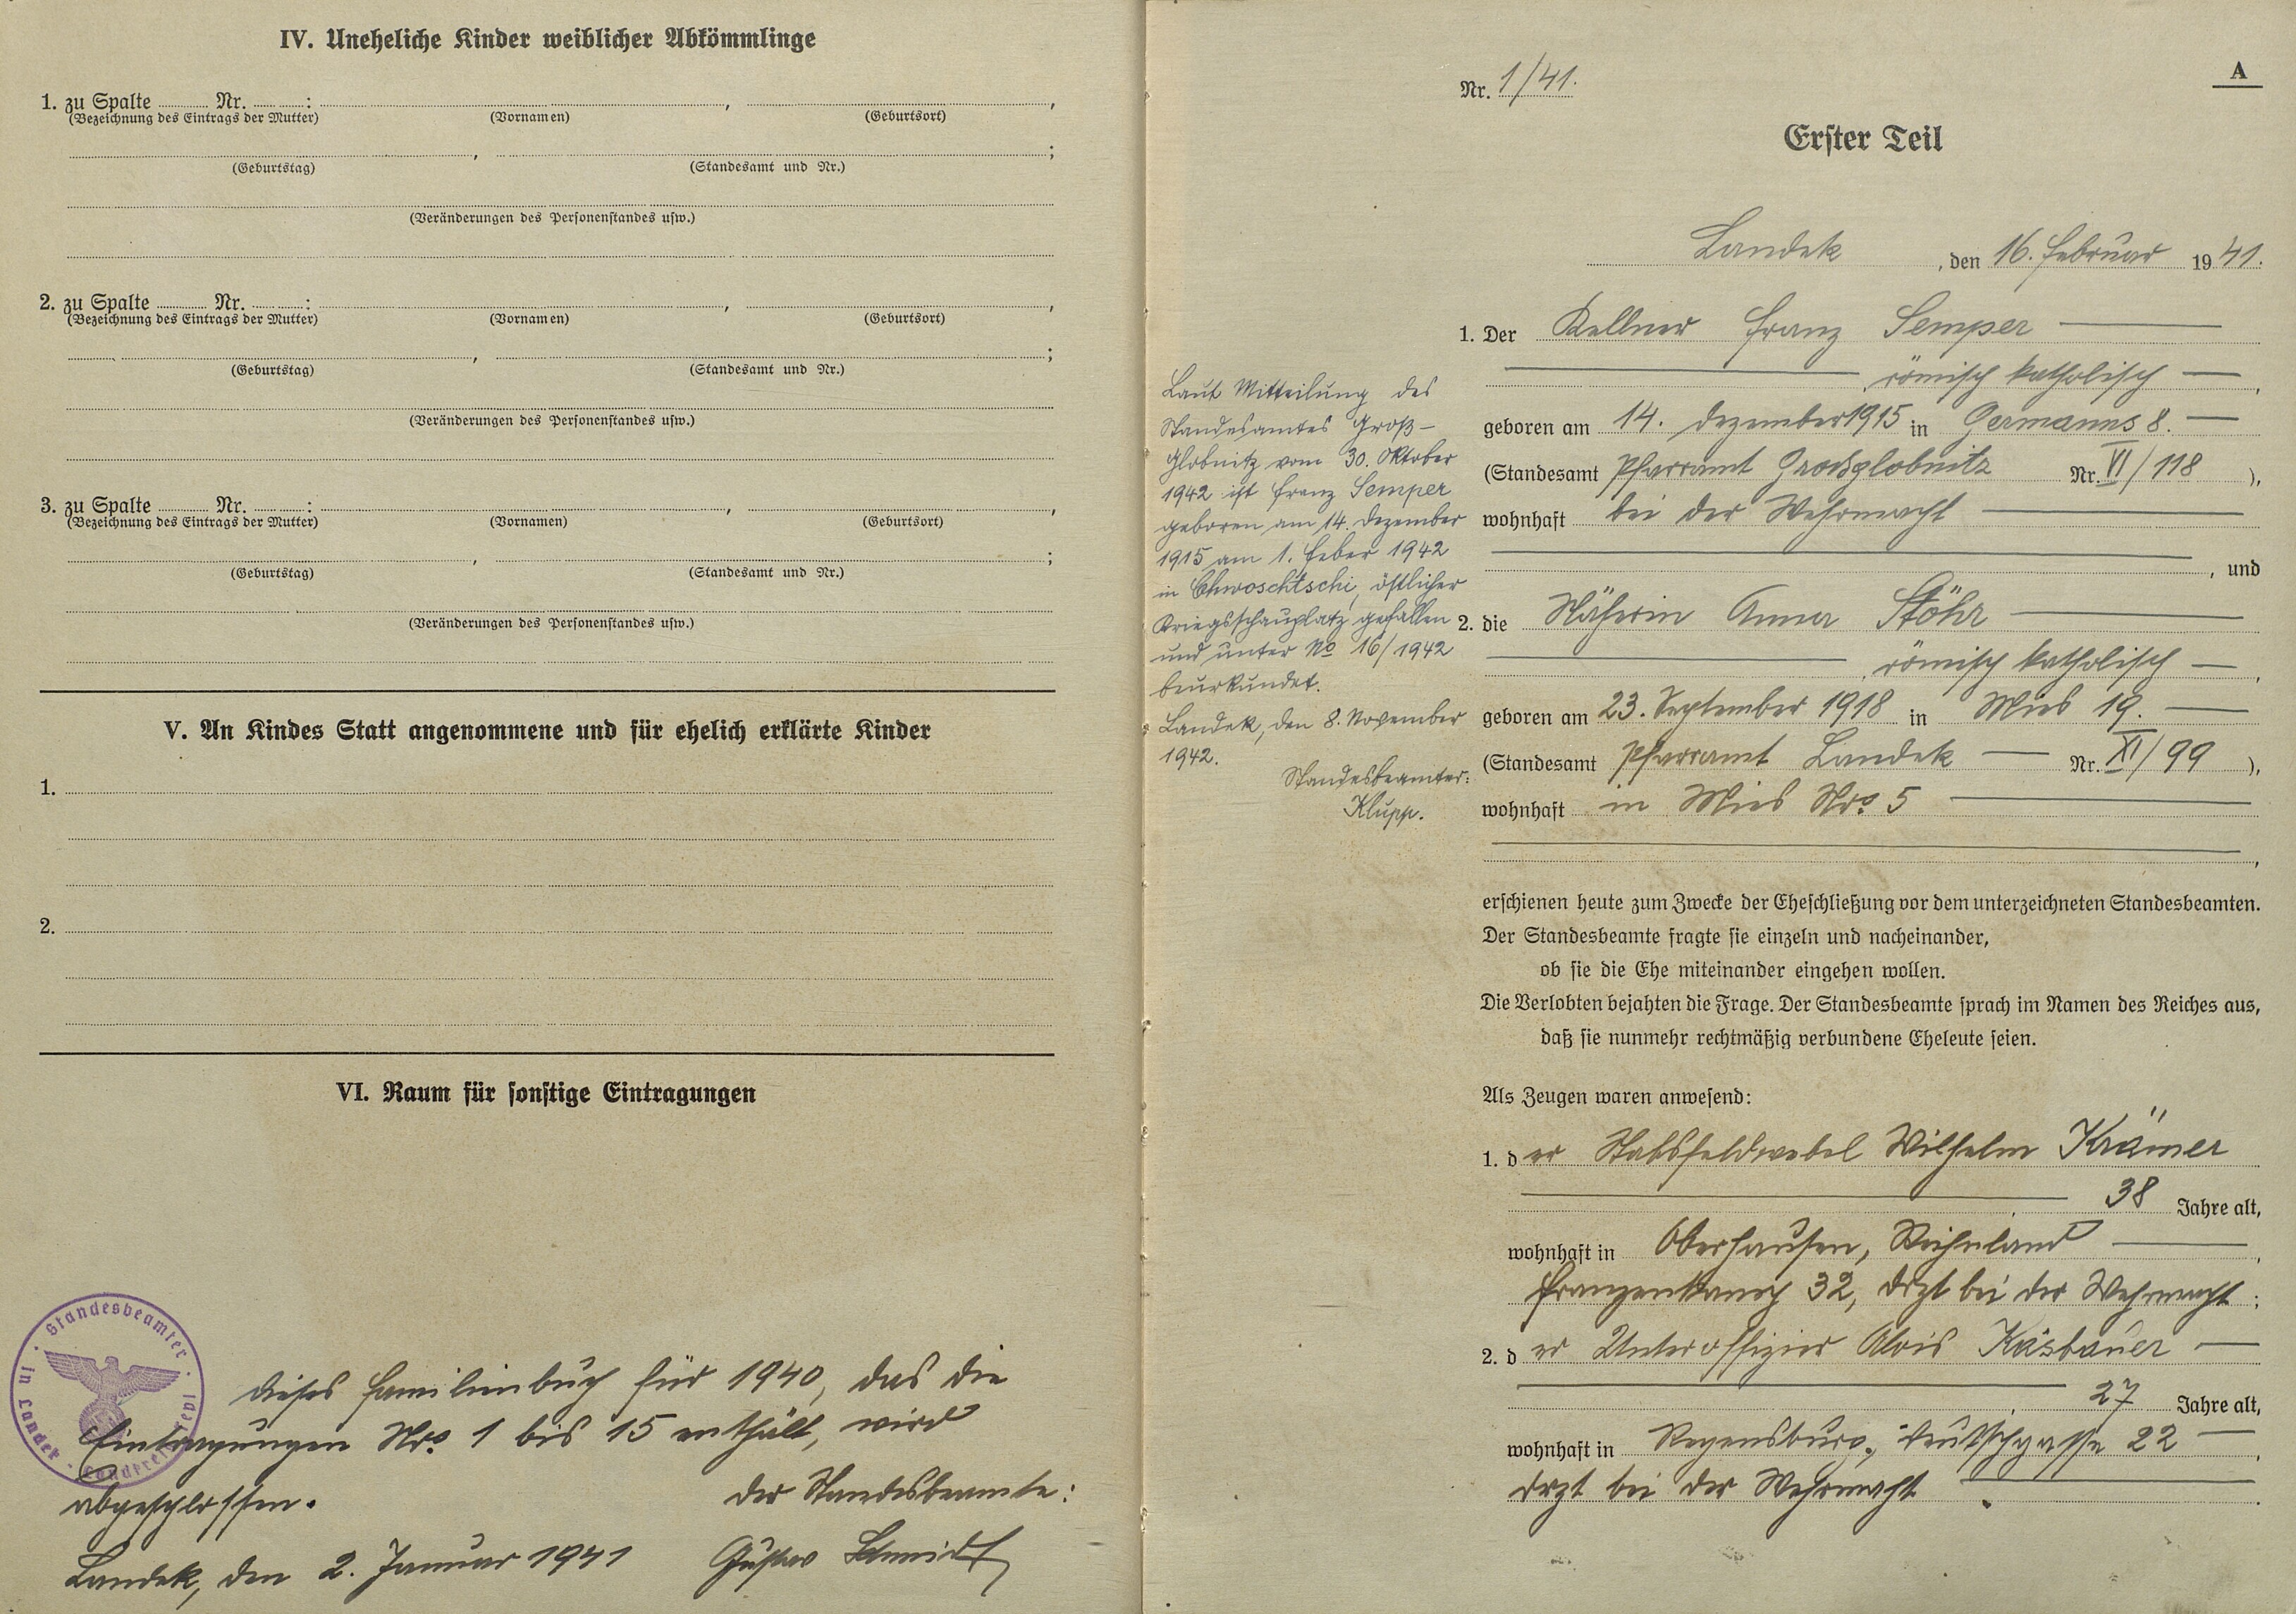 IV. Uneheliche Kinder weiblicher Abkömmlinge
1. zu Spalte Nr. : , ,
(Bezeichnung des Eintrags der Mutter) (Vornamen) (Geburtsort)
, ;
(Geburtstag) (Standesamt und Nr.)
(Veränderungen des Personenstandes usw.)
2. zu Spalte Nr. : , ,
(Bezeichnung des Eintrags der Mutter) (Vornamen) (Geburtsort)
, ;
(Geburtstag) (Standesamt und Nr.)
(Veränderungen des Personenstandes usw.)
3. zu Spalte Nr. : , ,
(Bezeichnung des Eintrags der Mutter) (Vornamen) (Geburtsort)
, ;
(Geburtstag) (Standesamt und Nr.)
(Veränderungen des Personenstandes usw.)
V. An Kindes Statt angenommene und für ehelich erklärte Kinder
1.
2.
VI. Raum für sonstige Eintragungen
Standesbeamter in Landek Landkreis
Dieses Familienbuch für 1940, das die
Eintragungen Nro 1 bis 15 enthält, wird
abgeschlossen.
Der Standesbeamte:
Landek, den 2. Januar 1941 Gustav Schmidt
A
Nr. 1/41.
Erster Teil
Landek, den 16. Februar 1941.
1. Der Kellner Franz Semper
römisch katholisch,
geboren am 14. Dezember 1915 in Germanns 8.
(Standesamt Pfarramt Grossglobnitz Nr. VI/118),
wohnhaft bei der Wehrmacht
, und
2. die Näherin Anna Stöhr
römisch katholisch,
geboren am 23. September 1918 in Mies 19.
(Standesamt Pfarramt Landek Nr. XI/99),
wohnhaft in Mies Nro. 5
,
Laut Mitteilung des
Standesamtes Groß-
Globnitz vom 30. Oktober
1942 ist Franz Semper
geboren am 14. Dezember
1915 am 1. Feber 1942
in Chwoschtschi, östlicher
Kriegsschauplatz gefallen
und unter No 16/1942
beurkundet.
Landek, den 8. November
1942.
Standesbeamter:
Klupp.
erschienen heute zum Zwecke der Eheschließung vor dem unterzeichneten Standesbeamten.
Der Standesbeamte fragte sie einzeln und nacheinander,
ob sie die Ehe miteinander eingehen wollen.
Die Verlobten bejahten die Frage. Der Standesbeamte sprach im Namen des Reiches aus,
daß sie nunmehr rechtmäßig verbundene Eheleute seien.
Als Zeugen waren anwesend:
1. der Stabsfeldwebel Wilhelm Krämer
38 Jahre alt,
wohnhaft in Oberhausen, Rheinland,
32, dzt bei der Wehrmacht;
2. der Unteroffizier Alois Käsbauer
27 Jahre alt,
wohnhaft in Regensburg, 22,
dzt bei der Wehrmacht.